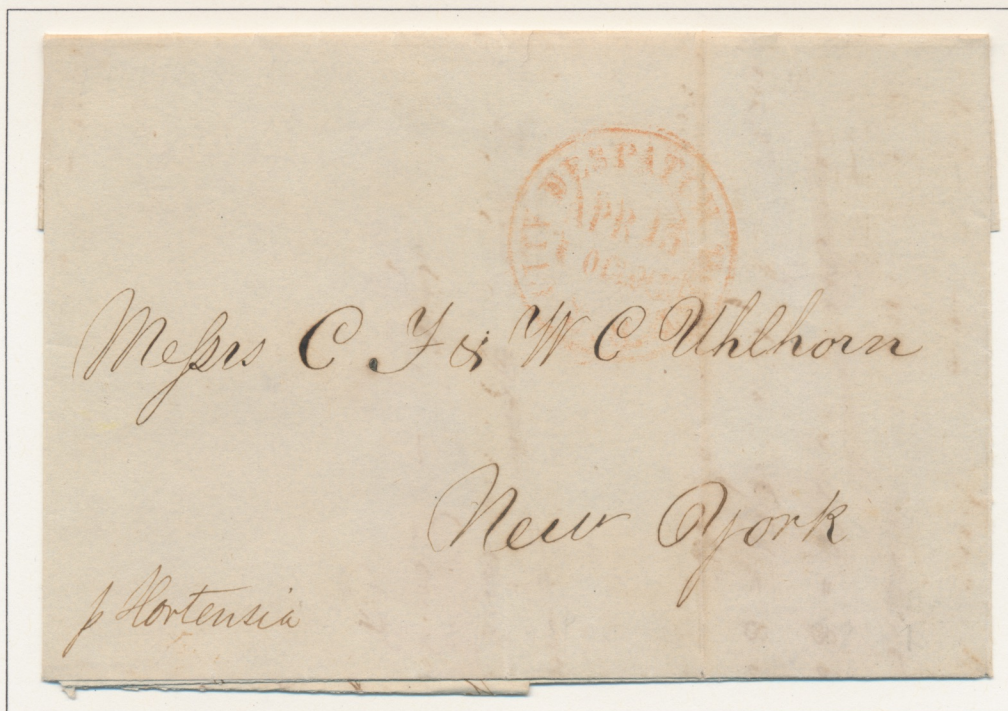 CITY DESPATCH
APR 15
O'CLOCK
Messrs C F & W C Uhlhorn
New York
p Hortensia